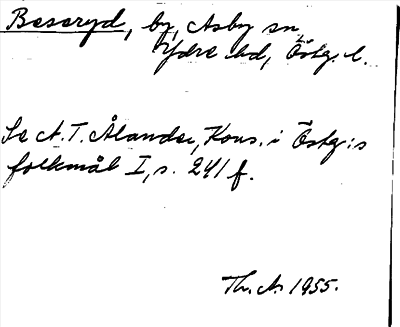 Beseryd, by, Asby sn,
Ydre hd, Östg. l.
Se A. T. Ålander, Kons. i Östg:s
folkmål I, s. 241 f.
Th. A. 1955.